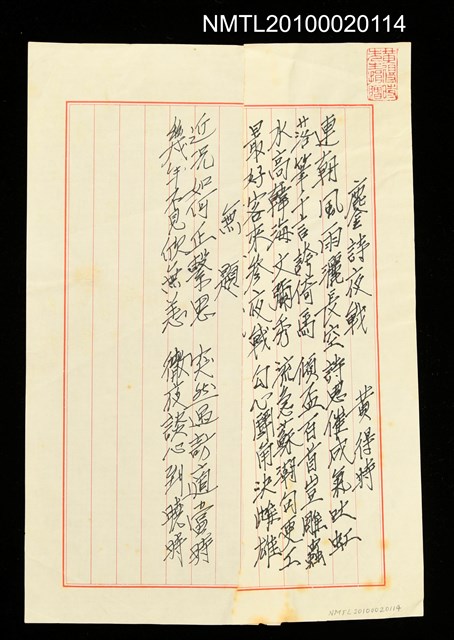 NMTL20100020114
塵詩夜戰
黃得時
連朝風雨灑長空 詩思催成氣吐虹
落筆千言誇倚馬 傾盃百首豈雕蟲
水高韓海文爾秀 流急蘇潮句更工
最好客來參夜戰 勾心鬥角決雌雄
無題
近況如何正繫思 突然過訪適當時
幾年不見欣無恙 徹夜談心到曉時
NMTL20100020114